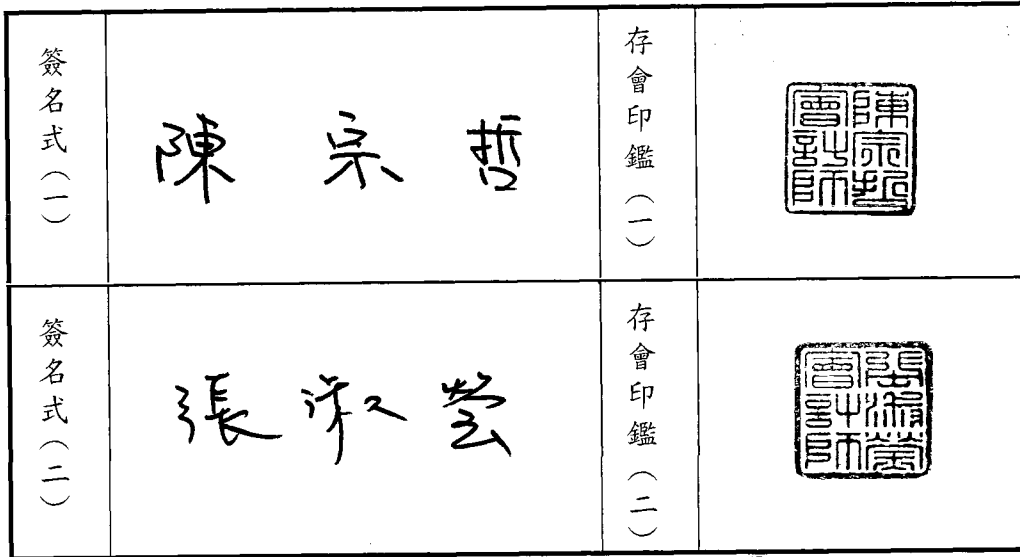 簽名式(一)
陳宗哲
存會印鑑(一)
陳宗哲
會計師
簽名式(二)
張淑瑩
存會印鑑(二)
張淑瑩
會計師